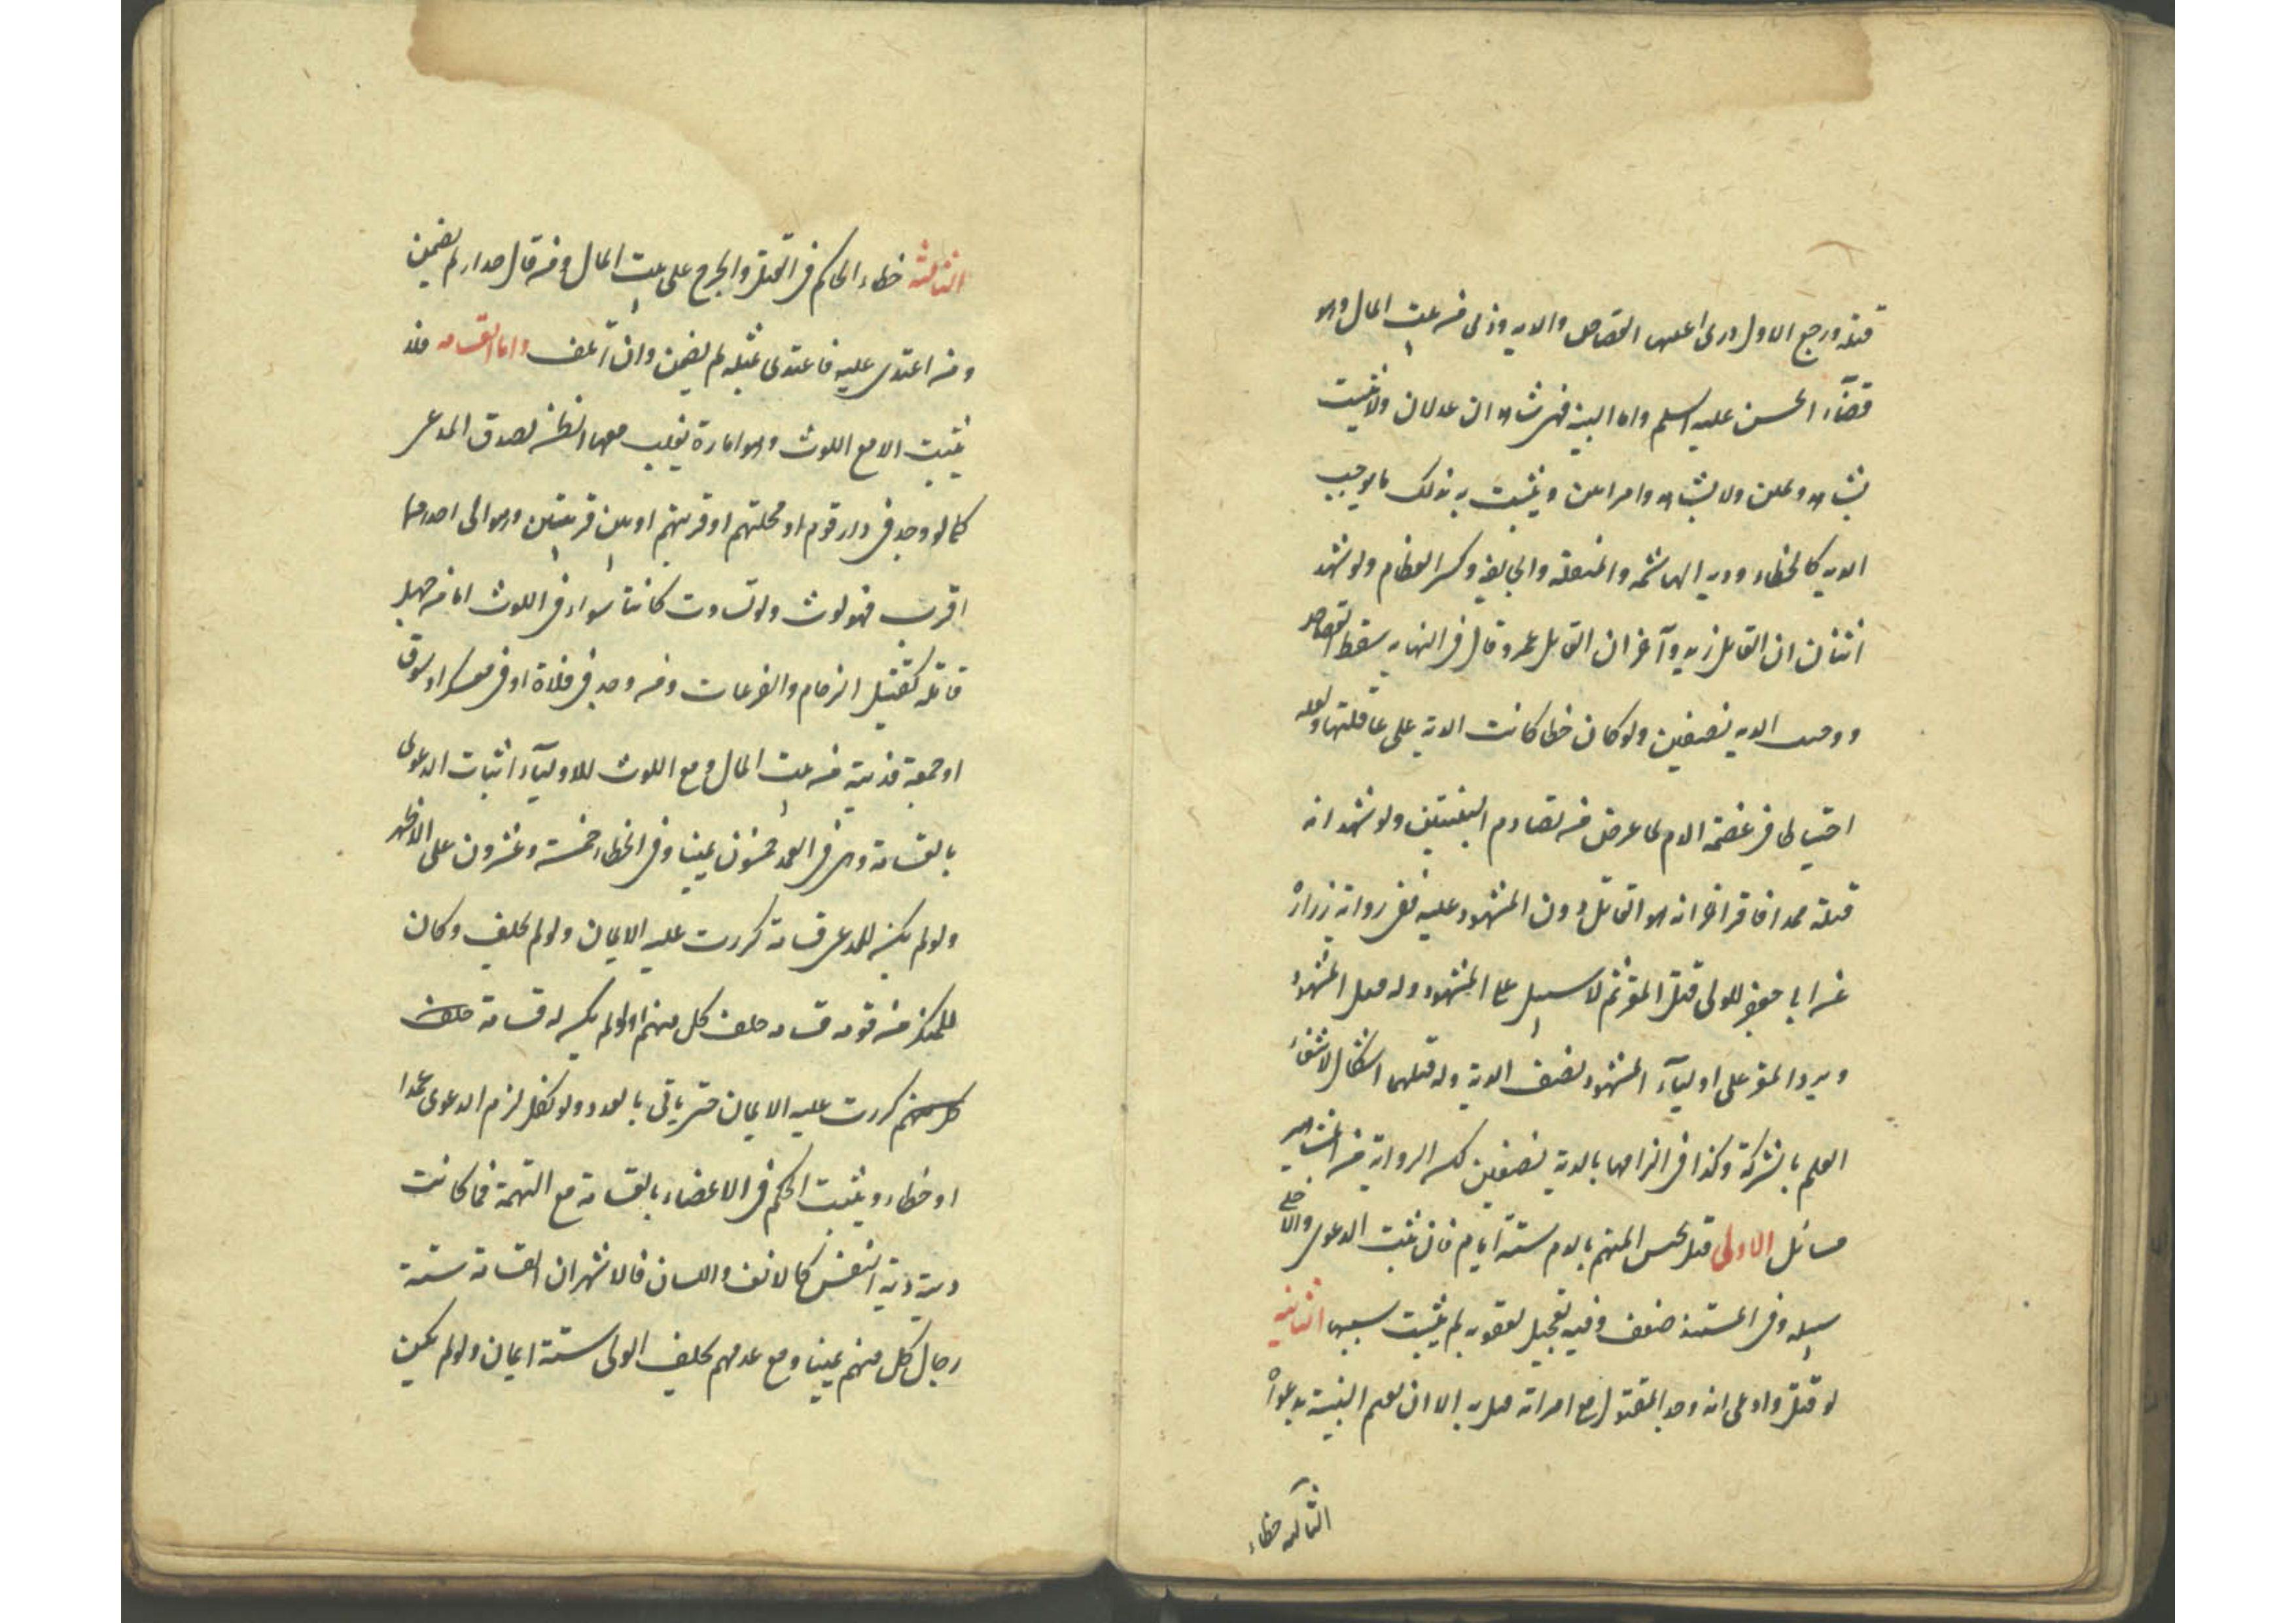 قتله ورجع الاول درئ عنهما القصاص والديه وودى من بيت المال وهو
قضآء الحسن عليه السلم واما البينه فهى شاهدان عدلان ولا يثبت
بشاهد ويمين ولا بشاهد وامراتين ويثبت به بذلك ما يوجب
الديه كالخطاء ودية الهاشمه والمنقله والجايفه وكسر العظام ولو شهد
اثنان ان القاتل زيد وآخران ان القاتل عمرو قال فى النهايه يسقط القصاص
ووجبت الديه نصفين ولو كان خطا كانت الدية على عاقلتهما ولعله
احتياطا فى عصمة الدم لما عرض من تصادم البينتين ولو شهد انه
قتله عمدا فاقر اخر انه هو القاتل دون المشهود عليه ففى رواية زرارة
عن ابى جعفر للولى قتل المقر ثم لا سبيل على المشهود وله قتل المشهود
ويرد المقر على اوليآء المشهود نصف الدية وله قتلهما اشكال لانتفاء
العلم بالشركة وكذا فى الزامهما بالدية نصفين لكن الرواية من المشاهير
مسائل الاولى قيل يحبس المتهم بالدم ستة ايام فان ثبتت الدعوى والا خلى
سبيله وفى المستند ضعف وفيه تعجيل لعقوبه لم يثبت سببها الثانيه
لو قتل وادعى انه وجد المقتول مع امراته قتل به الا ان يقيم البينة بدعواه
الثالثه خطاء
الثالثه خطاء الحاكم فى القتل والجرح على بيت المال ومن قال حذار لم يضمن
ومن اعتدى عليه فاعتدى بمثله لم يضمن وان آتلف واما القسامه فلا
يثبت الا مع اللوث وهو امارة يغلب معها الظن بصدق المدعى
كما لو وجد فى دار قوم او محلتهم او قريتهم او بين قريتين وهو الى احدهما
اقرب فهو لوث ولو تساوت كانتا سواء فى اللوث اما من جهل
قاتله كقتيل الزحام والفزعات ومن وجد فى فلاة او فى معسكر او سوق
او جمعة فديته من بيت المال ومع اللوث للاوليآء اثبات الدعوى
بالقسامة وهى فى العمد خمسون يمينا وفى الخطاء خمسة وعشرون على الاظهر
ولو لم يكن للمدعى قسامة كررت عليه الايمان ولو لم يحلف وكان
للمنكر من قومه قسامه حلف كل منهم ولو لم يكن له قسامة حلف
كل منهم كررت عليه الايمان حتى ياتى بالعدد ولو نكل لزم الدعوى عمدا
او خطاء ويثبت الحكم فى الاعضاء بالقسامة مع التهمة فما كانت
ديته دية النفس كالانف واللسان فالاشهر ان القسامة ستة
رجال كل منهم يمينا ومع عدمهم يحلف الولى ستة ايمان ولو لم يكن